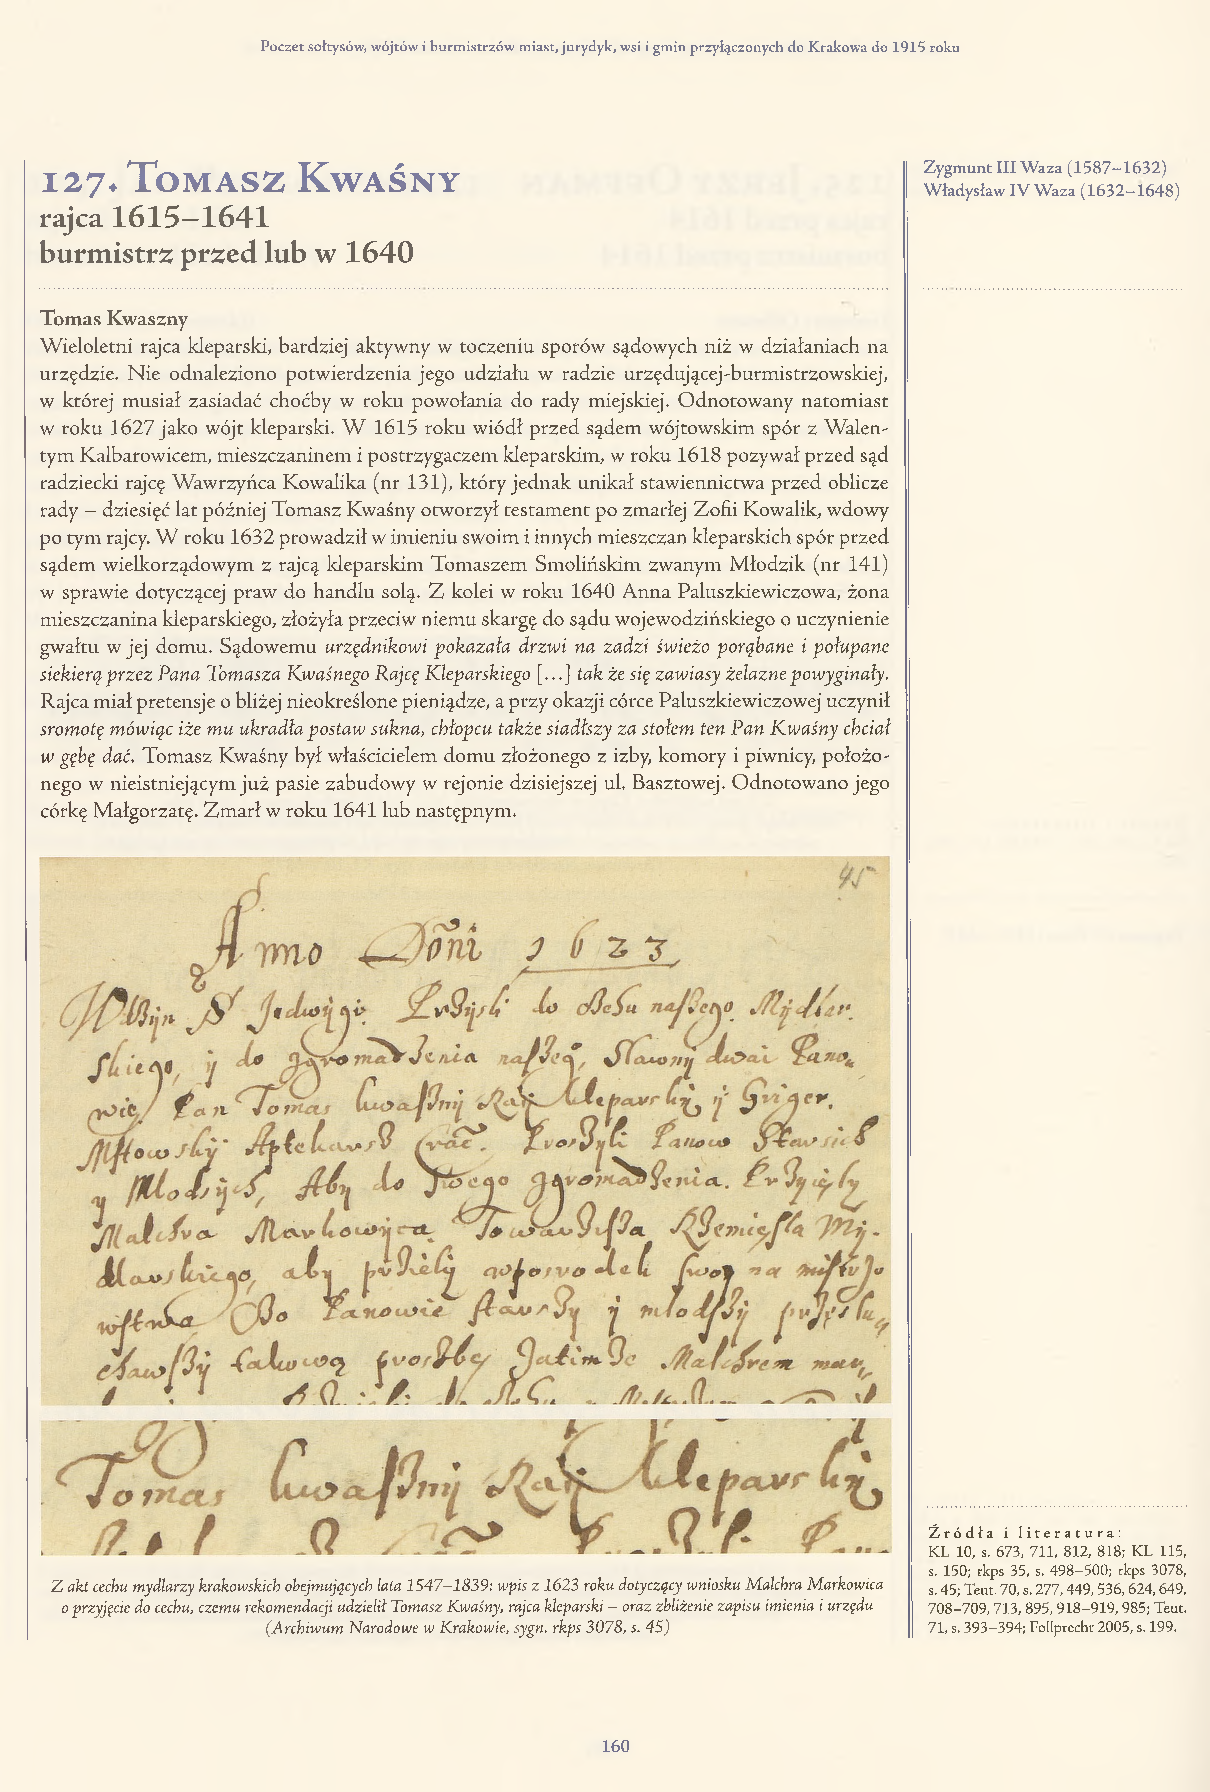 Poczet sołtysów, wójtów i burmistrzów miast, jurydyk, wsi i gmin przyłączonych do Krakowa do 1915 roku
127. Tomasz Kwaśny
rajca 1615–1641
burmistrz przed lub w 1640
Zygmunt III Waza (1587–1632)
Władysław IV Waza (1632–1648)
Tomas Kwaszny
Wieloletni rajca kleparski, bardziej aktywny w toczeniu sporów sądowych niż w działaniach na
urzędzie. Nie odnaleziono potwierdzenia jego udziału w radzie urzędującej-burmistrzowskiej,
w której musiał zasiadać choćby w roku powołania do rady miejskiej. Odnotowany natomiast
w roku 1627 jako wójt kleparski. W 1615 roku wiódł przed sądem wójtowskim spór z Walen-
tym Kalbarowicem, mieszczaninem i postrzygaczem kleparskim, w roku 1618 pozywał przed sąd
radziecki rajcę Wawrzyńca Kowalika (nr 131), który jednak unikał stawiennictwa przed oblicze
rady – dziesięć lat później Tomasz Kwaśny otworzył testament po zmarłej Zofii Kowalik, wdowy
po tym rajcy. W roku 1632 prowadził w imieniu swoim i innych mieszczan kleparskich spór przed
sądem wielkorządowym z rajcą kleparskim Tomaszem Smolińskim zwanym Młodzik (nr 141)
w sprawie dotyczącej praw do handlu solą. Z kolei w roku 1640 Anna Paluszkiewiczowa, żona
mieszczanina kleparskiego, złożyła przeciw niemu skargę do sądu wojewodzińskiego o uczynienie
gwałtu w jej domu. Sądowemu urzędnikowi pokazała drzwi na zadzi świeżo porąbane i połupane
siekierą przez Pana Tomasza Kwaśnego Rajcę Kleparskiego [...] tak że się zawiasy żelazne powyginały.
Rajca miał pretensje o bliżej nieokreślone pieniądze, a przy okazji córce Paluszkiewiczowej uczynił
sromotę mówiąc iże mu ukradła postaw sukna, chłopcu także siadłszy za stołem ten Pan Kwaśny chciał
w gębę dać. Tomasz Kwaśny był właścicielem domu złożonego z izby, komory i piwnicy, położo-
nego w nieistniejącym już pasie zabudowy w rejonie dzisiejszej ul. Basztowej. Odnotowano jego
córkę Małgorzatę. Zmarł w roku 1641 lub następnym.
45
Anno Dōni 1623
Jadwigi Przyśli do naszego
do zgromadzenia Sławni dwai Pano
Pan Tomas kwaszny kleparsky
Panow Starsich
y Młodsych, Aby do swego zgromadzenia. Przyięly
Malchra Markowica Towarzisza Rzemięsla My-
dlarskiego, aby
Panowie starszy y mlodszy
prozbę Malchrem
Tomas kwaszny kleparsky
Z akt cechu mydlarzy krakowskich obejmujących lata 1547–1839: wpis z 1623 roku dotyczący wniosku Malchra Markowica
o przyjęcie do cechu, czemu rekomendacji udzielił Tomasz Kwaśny, rajca kleparski – oraz zbliżenie zapisu imienia i urzędu
(Archiwum Narodowe w Krakowie, sygn. rkps 3078, s. 45)
Źródła i literatura:
KL 10, s. 673, 711, 812, 818; KL 115,
s. 150; rkps 35, s. 498–500; rkps 3078,
s. 45; Teut. 70, s. 277, 449, 536, 624, 649,
708–709, 713, 895, 918–919, 985; Teut.
71, s. 393–394; Follprecht 2005, s. 199.
160